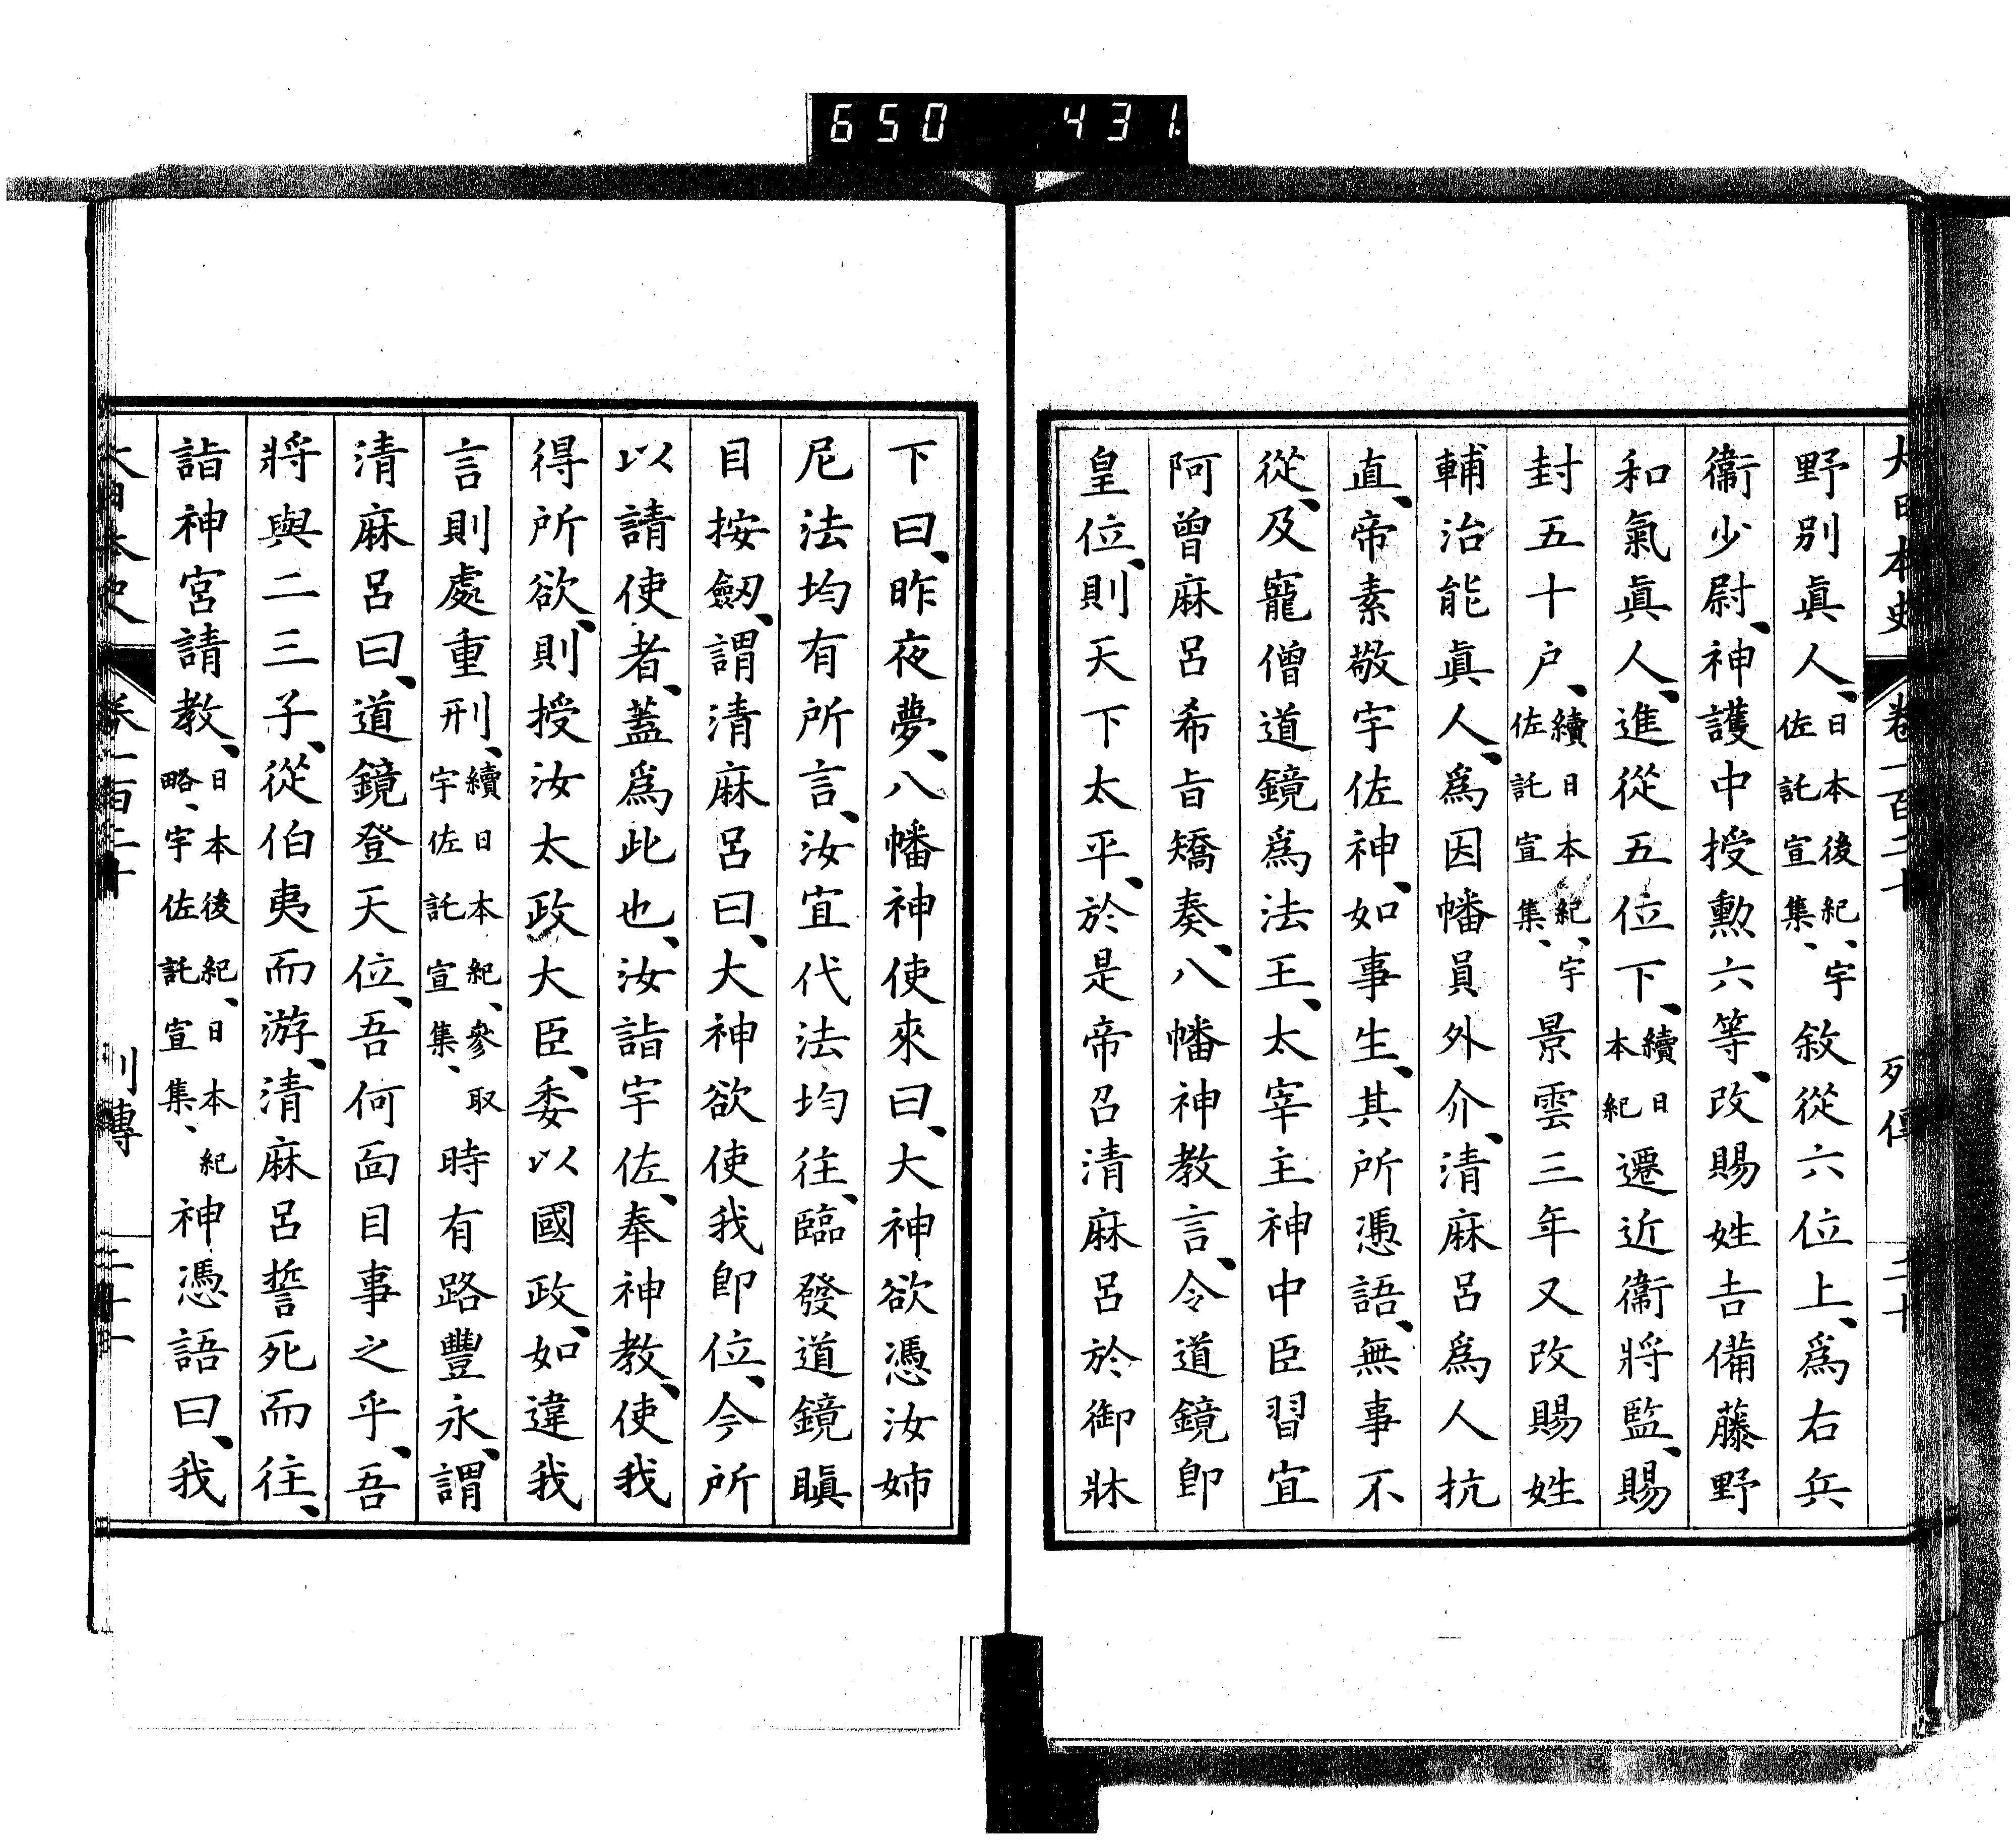 650 431
大日本史 卷一百二十 列傳 二十
野別眞人、日本後紀、宇佐託宣集、敘從六位上、爲右兵
衞少尉、神護中授勲六等、改賜姓吉備藤野
和氣眞人、進從五位下、續日本紀遷近衞將監、賜
封五十户、續日本紀、宇佐託宣集、景雲三年又改賜姓
輔治能眞人、爲因幡員外介、清麻呂爲人抗
直、帝素敬宇佐神、如事生、其所憑語、無事不
從、及寵僧道鏡爲法王、太宰主神中臣習宜
阿曾麻呂希旨矯奏、八幡神教言、令道鏡卽
皇位、則天下太平、於是帝召清麻呂於御牀
下曰、昨夜夢、八幡神使來曰、大神欲憑汝姉
尼法均有所言、汝宜代法均往、臨發道鏡瞋
目按劔、謂清麻呂曰、大神欲使我卽位、今所
以請使者、蓋爲此也、汝詣宇佐、奉神教、使我
得所欲、則授汝太政大臣、委以國政、如違我
言則處重刑、續日本紀、參取宇佐託宣集、時有路豐永、謂
清麻呂曰、道鏡登天位、吾何面目事之乎、吾
將與二三子、從伯夷而游、清麻呂誓死而往、
詣神宮請教、日本後紀、日本紀略、宇佐託宣集、神憑語曰、我
大日本史 卷一百二十 列傳 二十一